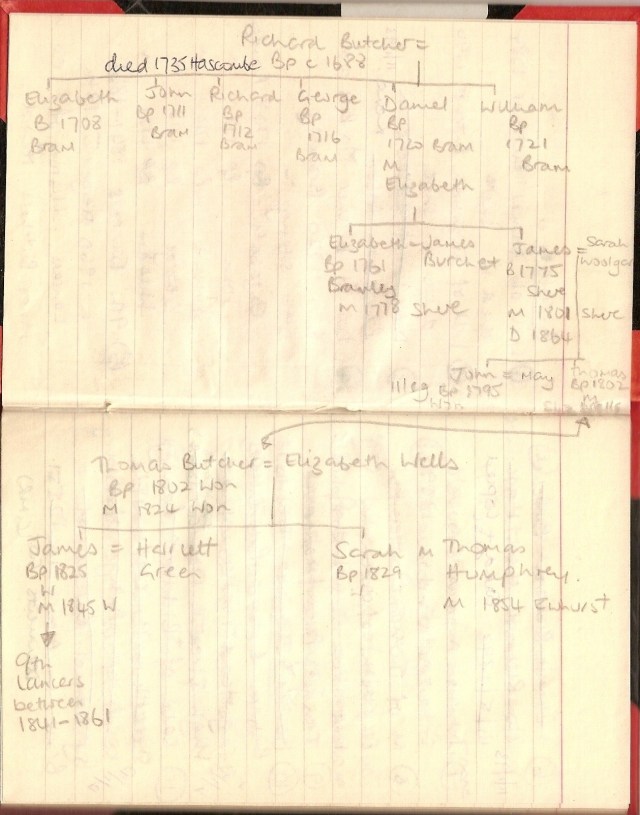 Richard Butcher =
died 1735 Hascombe Bp c 1688
Elizabeth John Richard George Daniel William
B 1708 Bp 1711 Bp Bp Bp Bp
Bram Bram 1712 1716 1720 Bram 1721
Bram Bram M Bram
Elizabeth
Elizabeth = James James = Sarah
Bp 1761 Burchet B 1775 Woolgar
Bramley Shere
M 1778 Shere M 1801 Shere
D 1864
John = May Thomas
illeg Bp 1795 Bp 1802
M
Thomas Butcher = Elizabeth Wells
Bp 1802 Won
M 1824 Won
James = Harriett Sarah M Thomas
Bp 1825 Green Bp 1829 Humphrey.
W
M 1845 W M 1854 Ewhurst
9th
Lancers
between
1841-1861